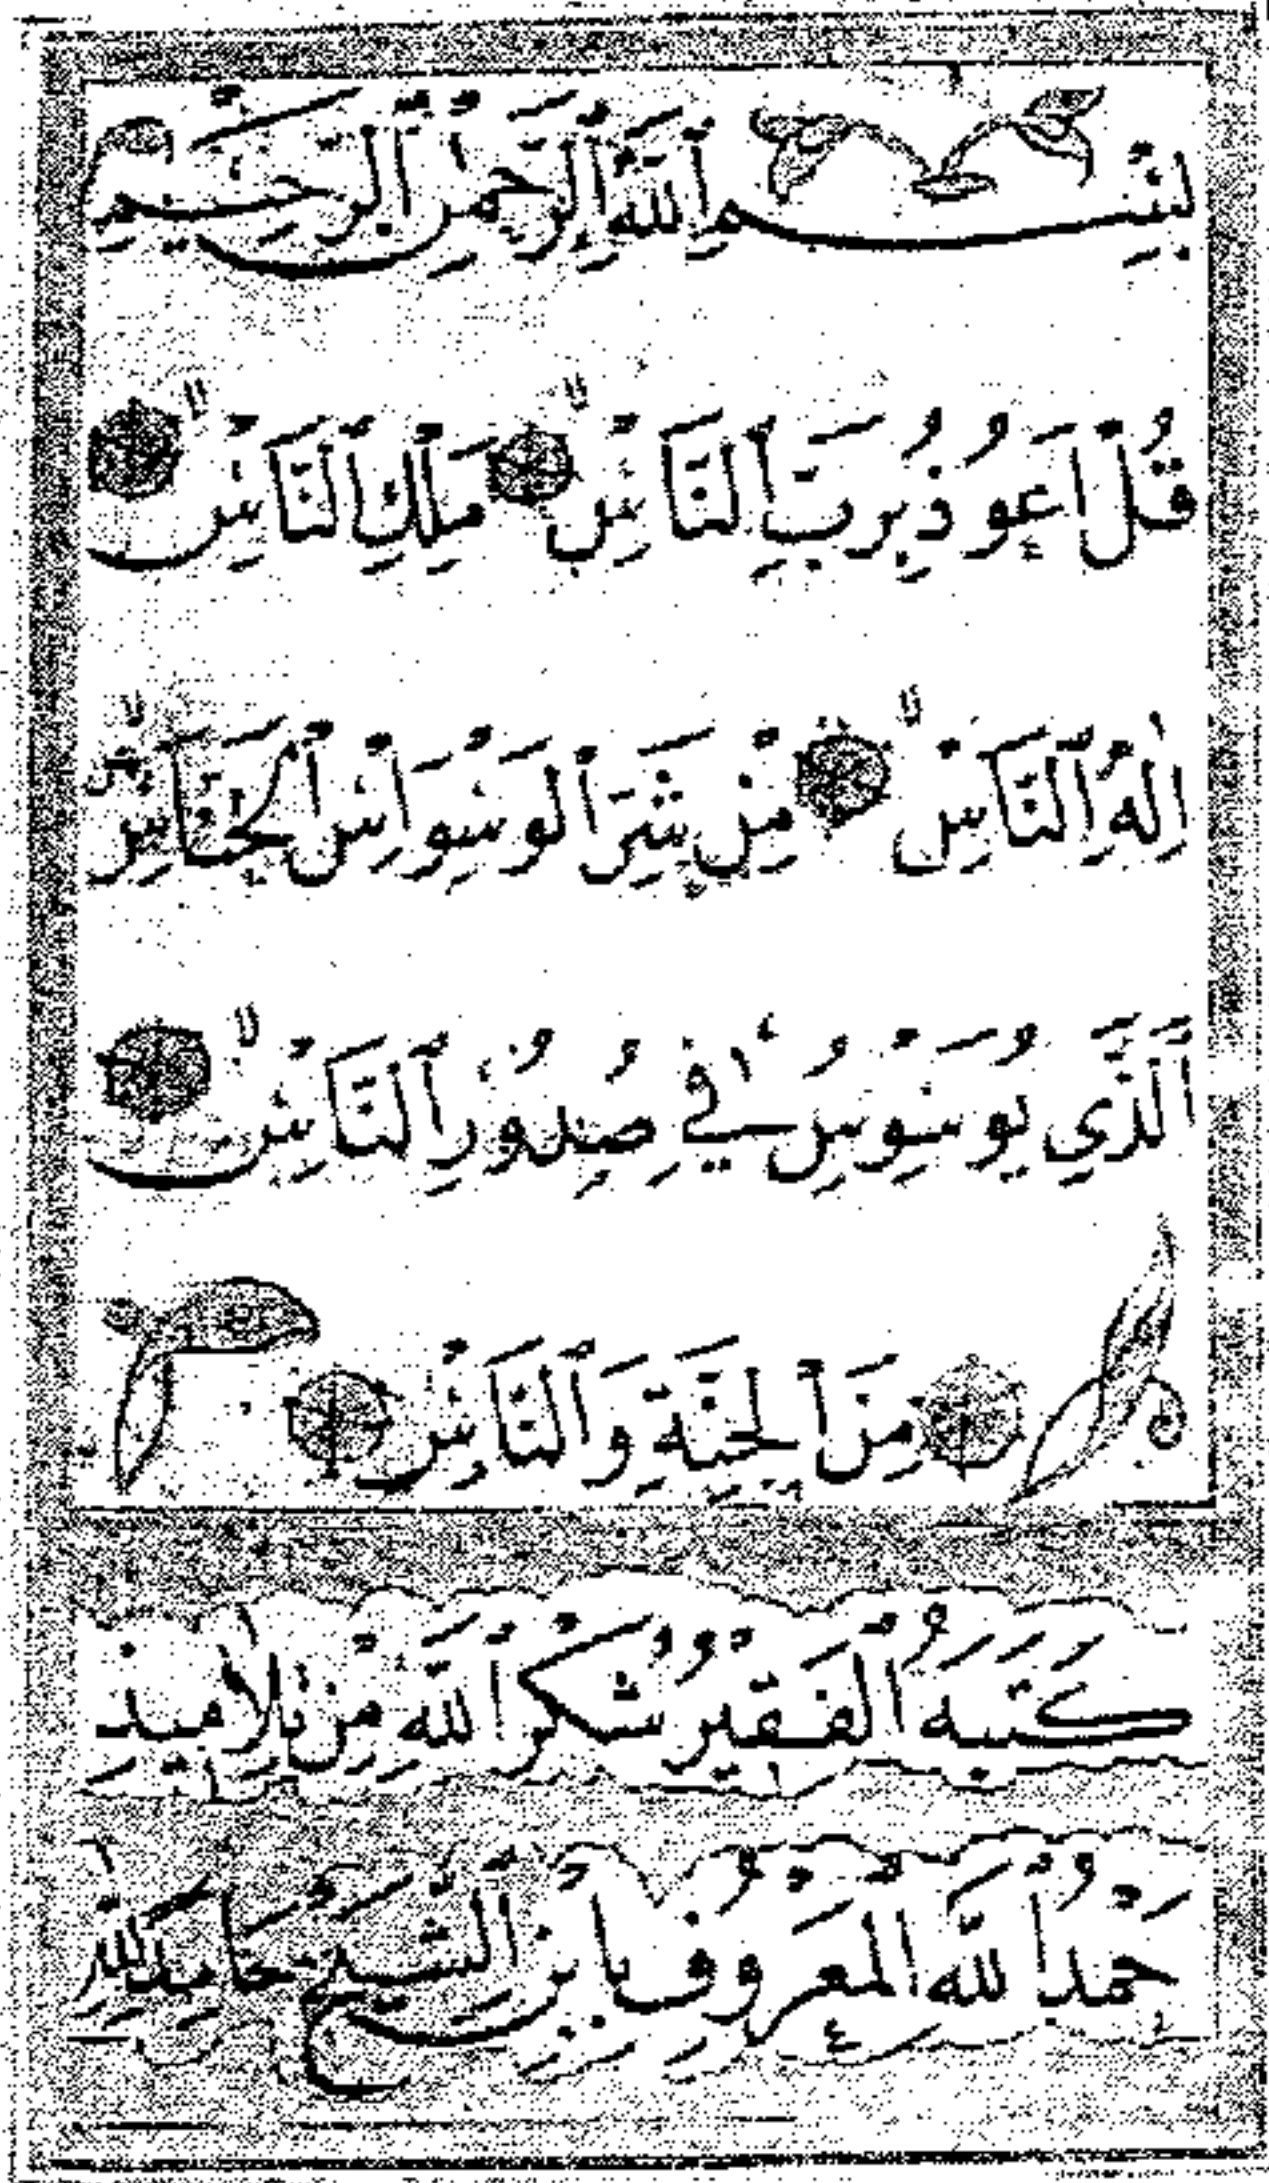 بِسْمِ ٱللّٰهِ ٱلرَّحْمٰنِ ٱلرَّحِيمِ
قُلْ اَعُوذُ بِرَبِّ ٱلنَّاسِۙ مَلِكِ ٱلنَّاسِۙ
اِلٰهِ ٱلنَّاسِۙ مِنْ شَرِّ ٱلْوَسْوَاسِ ٱلْخَنَّاسِۙ
ٱلَّذِي يُوَسْوِسُ فِي صُدُورِ ٱلنَّاسِۙ
مِنَ ٱلْجِنَّةِ وَٱلنَّاسِ
كَتَبَهُ ٱلْفَقِيرُ شُكْرُ ٱللّٰهِ مِنْ تَلَامِيذِ
حَمْدُ ٱللّٰهِ ٱلْمَعْرُوفِ بِابْنِ ٱلشَّيْخِ